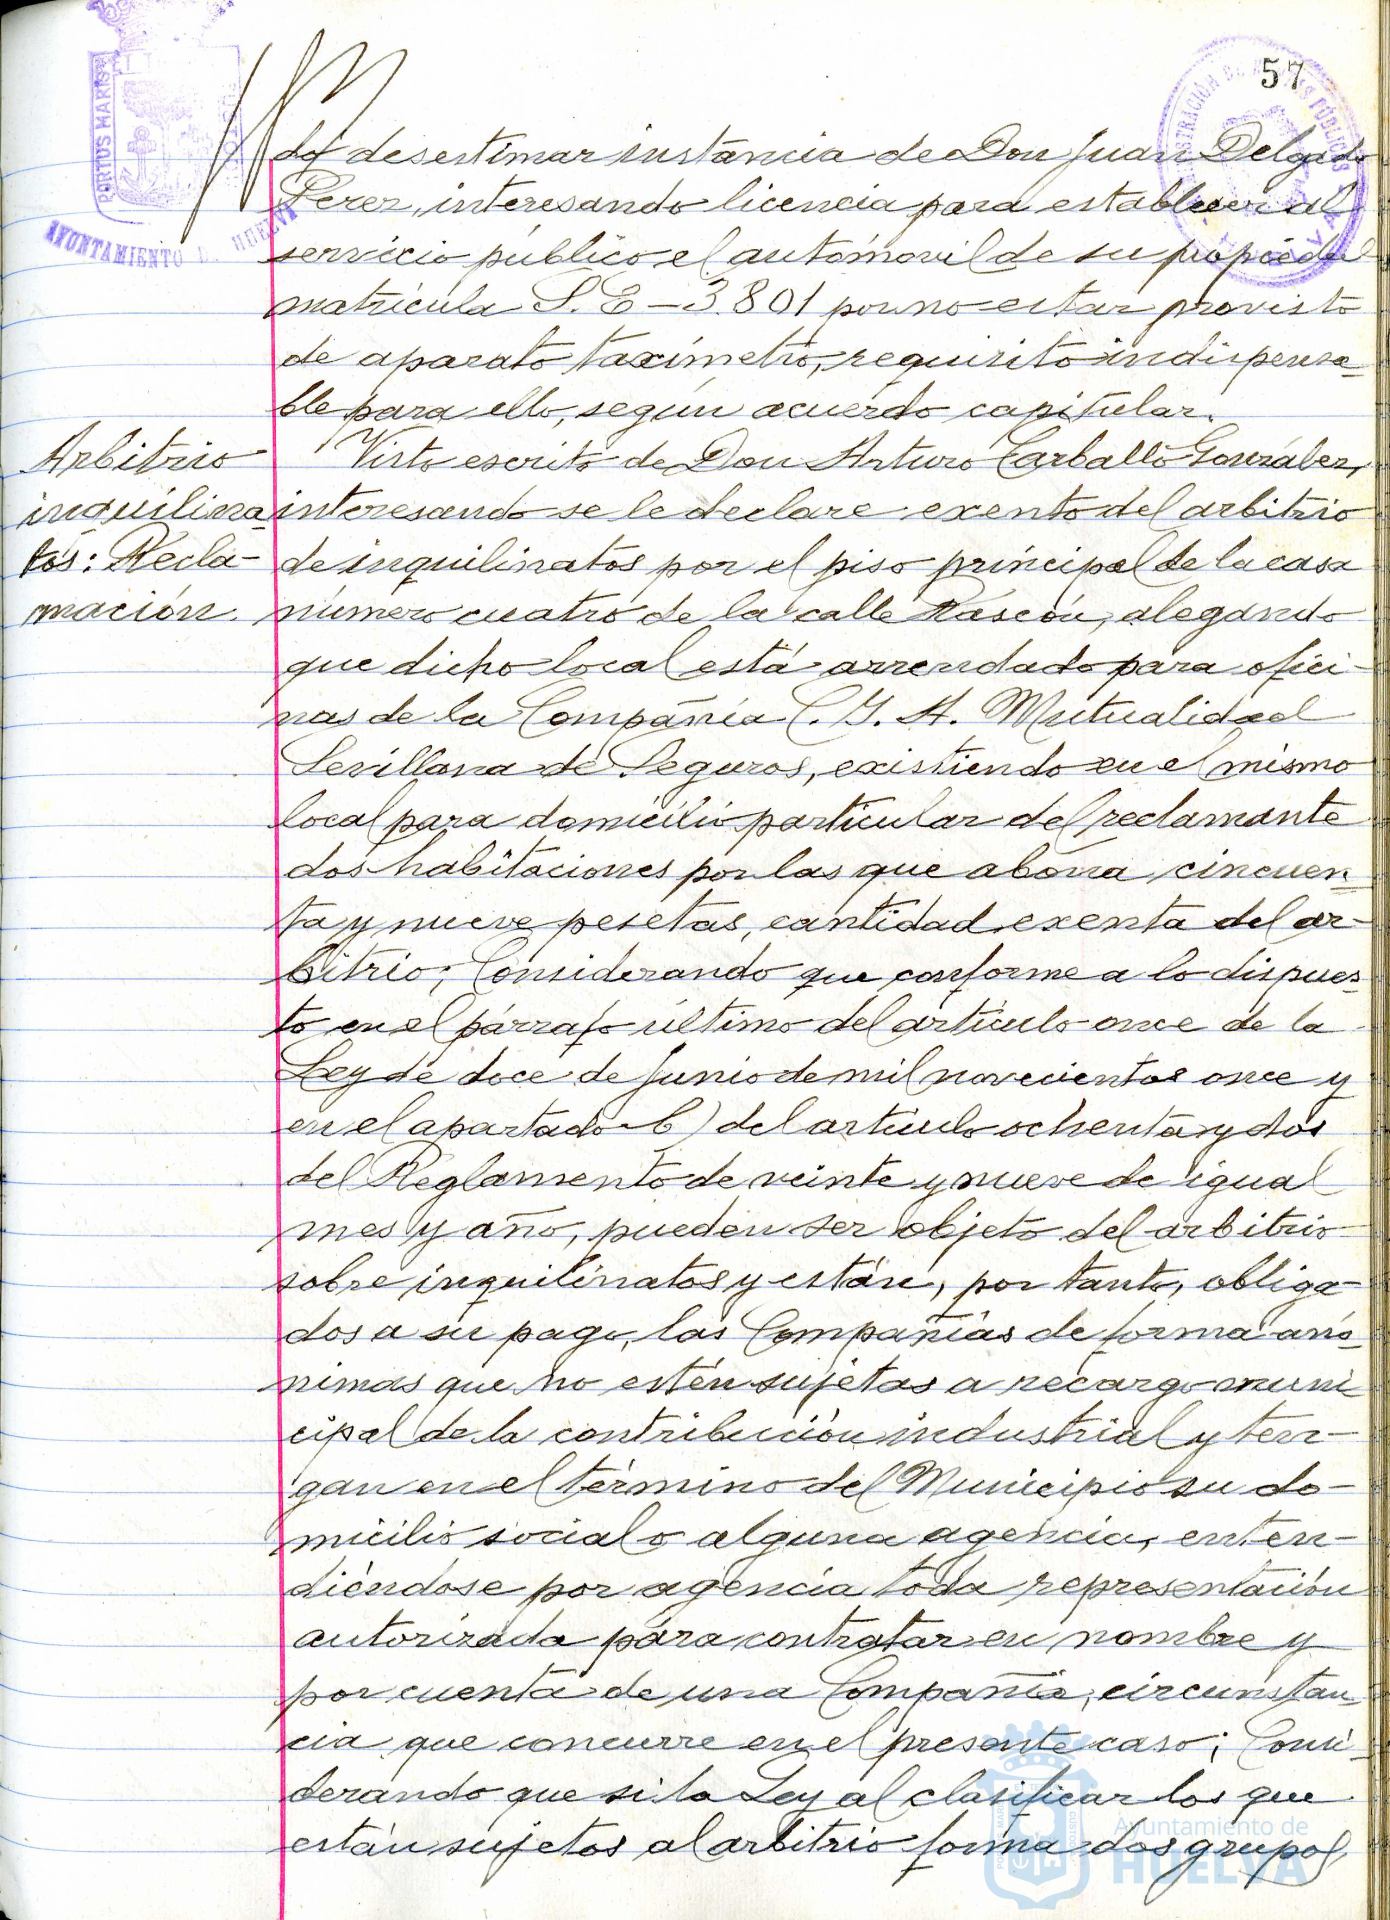 57
PORTUS MARIS
AYUNTAMIENTO DE HUELVA
desestimar instancia de Don Juan Delgado
Perez, interesando licencia para establecer al
servicio público el automóvil de su propiedad
matrícula S.E-3.801 por no estar provisto
de aparato taxímetro, requisito indispensa-
ble para ello, según acuerdo capitular.
Arbitrio
inquilina-
tos: Recla-
mación.
Visto escrito de Don Arturo Carballo González,
interesando se le declare exento del arbitrio
de inquilinatos por el piso principal de la casa
número cuatro de la calle Rascón, alegando
que dicho local está arrendado para ofici-
nas de la Compañía C. Y. A. Mutualidad
Sevillana de Seguros, existiendo en el mismo
local para domicilio particular del reclamante
dos habitaciones por las que abona cincuen-
ta y nueve pesetas, cantidad exenta del ar-
bitrio; Considerando que conforme a lo dispues-
to en el párrafo último del artículo once de la
Ley de doce de Junio de mil novecientos once y
en el apartado b) del artículo ochenta y dos
del Reglamento de veinte y nueve de igual
mes y año, pueden ser objeto del arbitrio
sobre inquilinatos y están, por tanto, obliga-
dos a su pago, las Compañías de forma anó-
nimas que no estén sujetas a recargo muni
cipal de la contribución industrial y ten-
gan en el término del Municipio su do-
micilio social o alguna agencia, enten-
diéndose por agencia toda representación
autorizada para contratar en nombre y
por cuenta de una Compañía, circunstan-
cia que concurre en el presente caso; Consi-
derando que si la Ley al clasificar los que
están sujetos al arbitrio forma dos grupos,
Ayuntamiento de
HUELVA